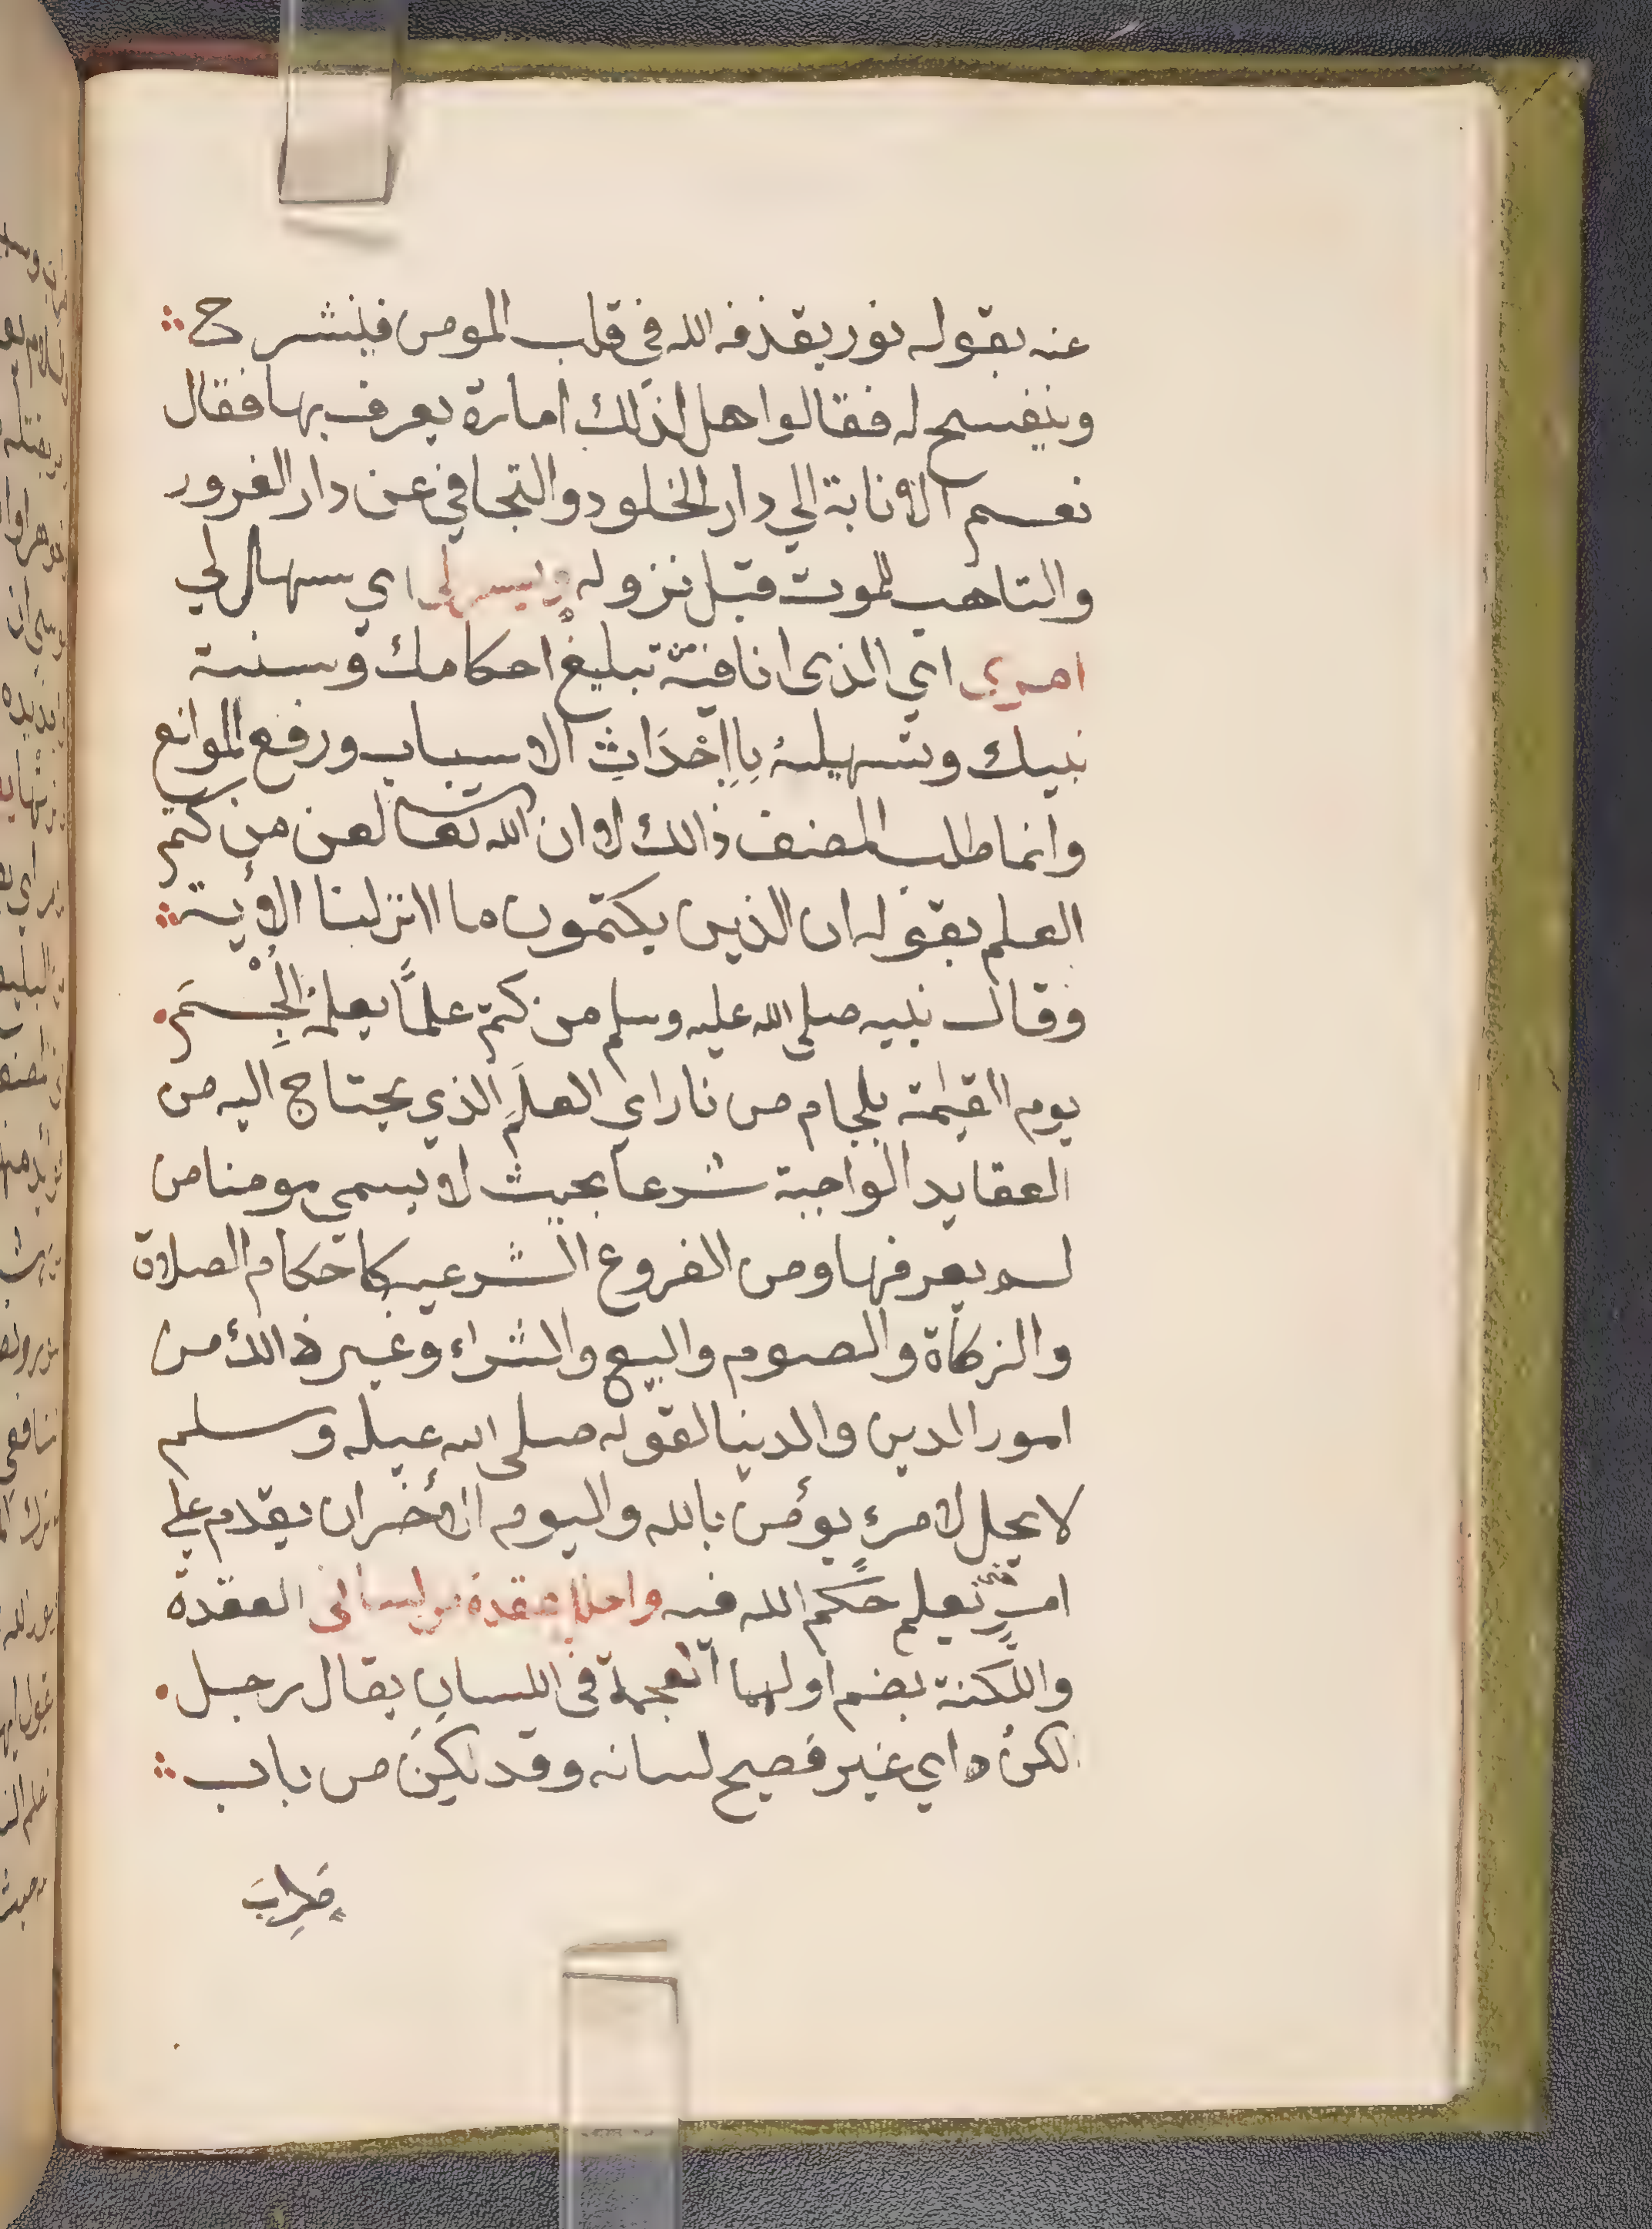 عنه بقوله نور يقذفه الله في قلب المومن فينشرح
وينفسح له فقالوا هل لذلك امارة يعرف بها فقال
نعم الانابة الي دار الخلود والتجافي عن دار الغرور
والتاهب للموت قبل نزوله ويسر لي اي سهل لي
امري اي الذي انا فيه تبليغ احكامك وسنة
نبيك وتسهيله بِاِحْدَاثِ الاسباب ورفع الموانع
وانما طلب المصنف ذالك لان الله تعا لعن من كتم
العلم بقوله ان الذين يكتمون ما انزلنا الأية
وقال نبيه صلي الله عليه وسلم من كتم علماً يعلمه الجم
يوم القيٰمة بلجام من نار اي العلم الذي يحتاج اليه من
العقايد الواجبة شرعا بحيث لا يسمي مومنا من
لم يعرفها ومن الفروع الشرعيه كاحكام الصلاة
والزكاة والصوم والبيع والشراء وغير ذالك من
امور الدين والدنيا لقوله صلى الله عيله وسلم
لا يحل لامرء يؤمن بالله واليوم الأخر ان يقدم علي
امرٍ يعلم حكم الله فيه واحلل عقدة من لساني العقدة
واللكنة بضم اولهما العجمة في اللسان يقال رجل
لكن اي غير فصيح لسانه وقد لكِنَ من باب
طَرِبَ